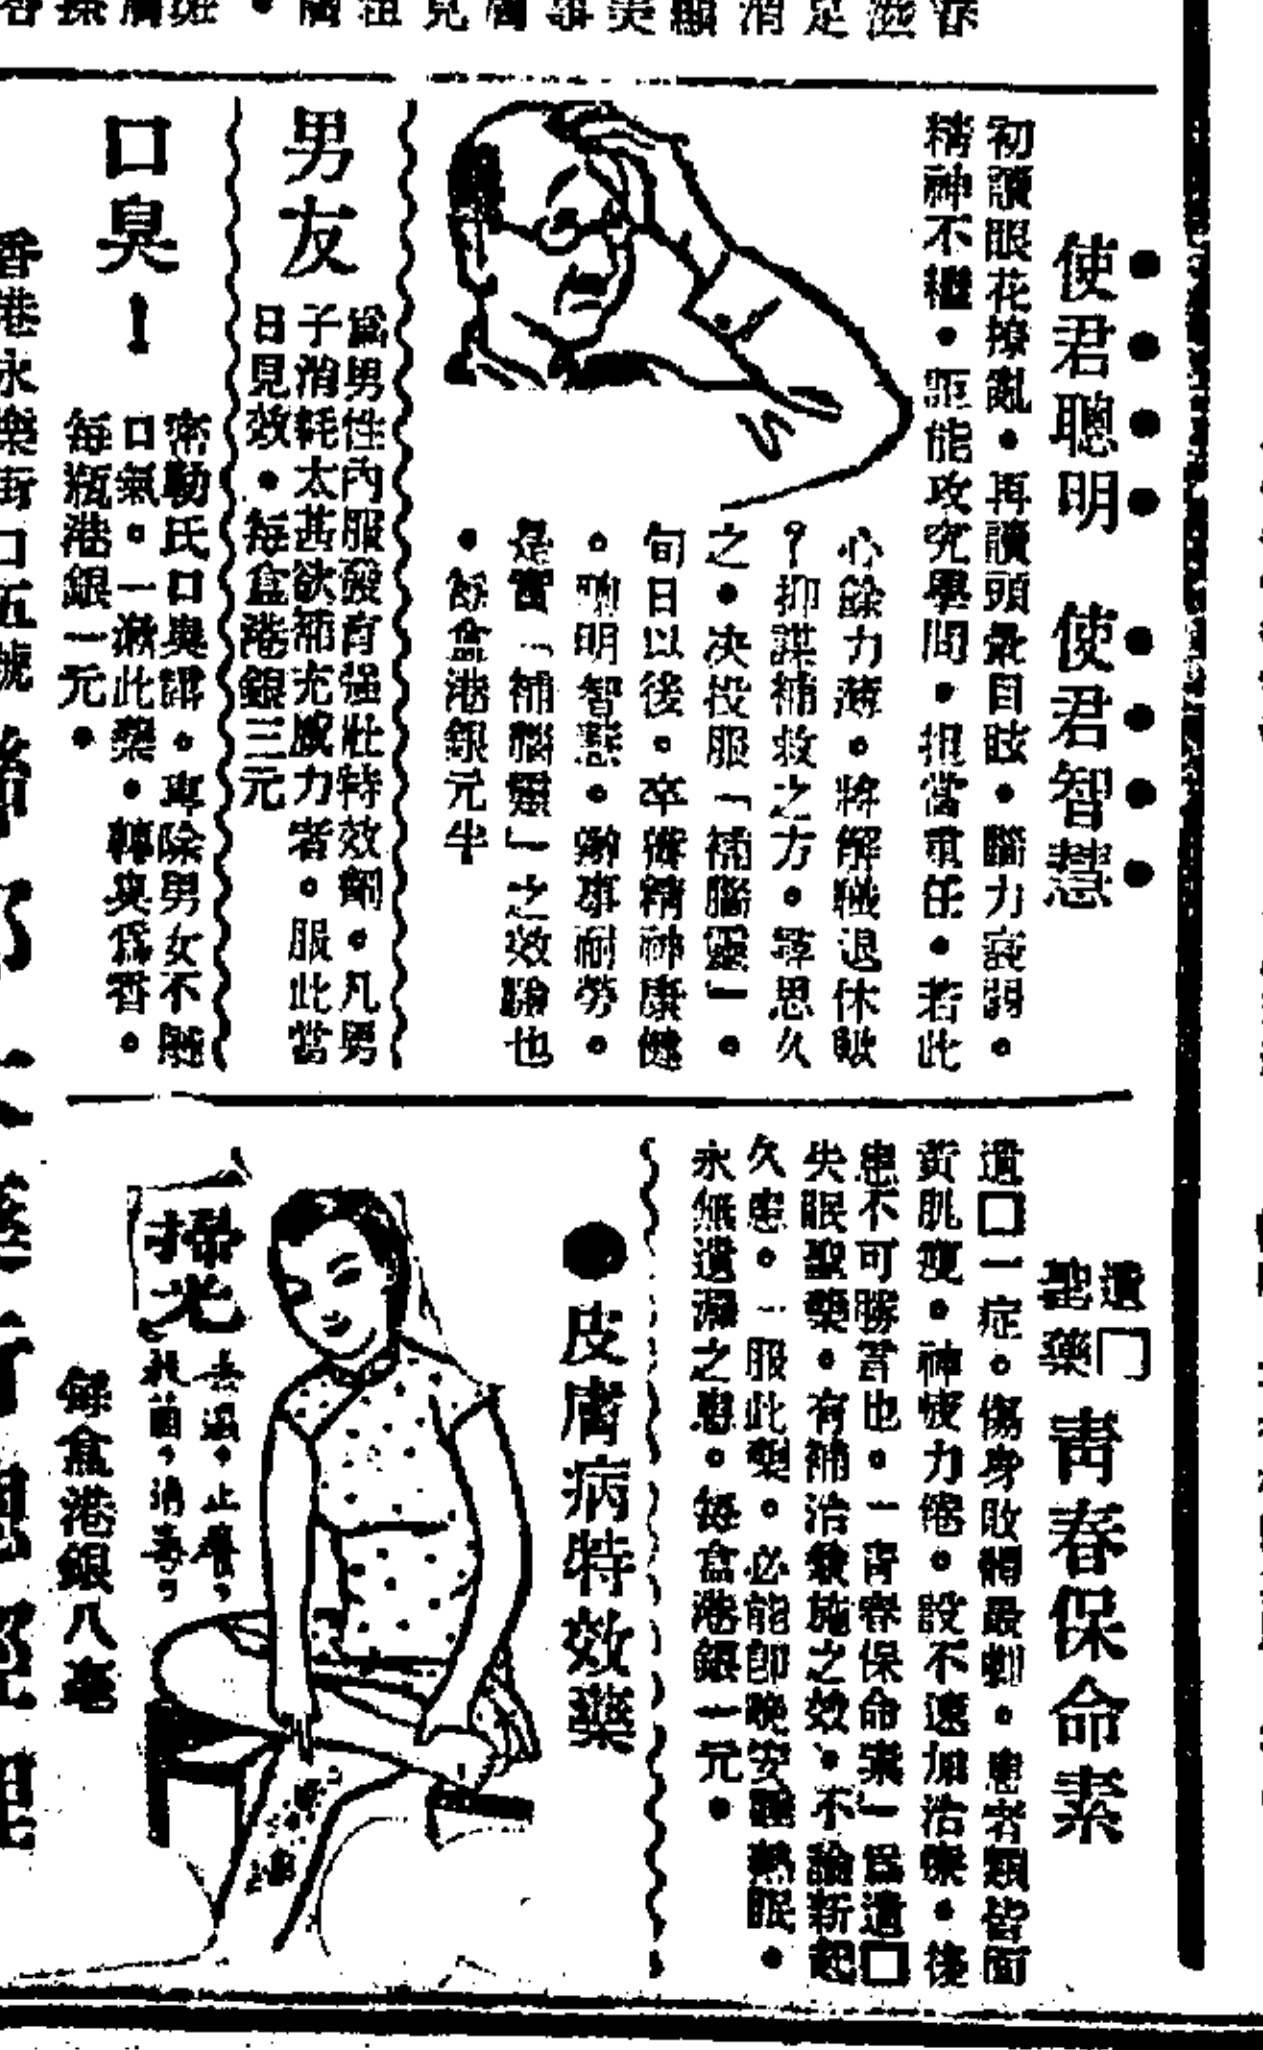 使君聰明　使君智慧
初讀眼花撩亂・再讀頭暈目眩・腦力衰弱。
精神不繼・詎能攻究學問・担當重任・若此
心餘力薄・將解職退休歟
？抑謀補救之方・尋思久
之・决投服「補腦靈」・
旬日以後。卒獲精神康健
。聰明智慧・辦事耐勞。
是實「補腦靈」之效驗也
・每盒港銀元半
男友
爲男性內服發育强壯特效劑・凡男
子消耗太甚欲補充威力者。服此當
日見效・每盒港銀三元
口臭！
氏口臭謂。專除男女不
口氣。一漱此藥・轉臭爲香。
每瓶港銀一元・
香港永樂街口伍號
遺□
聖藥
青春保命素
遺□一症。傷身敗體最・患者類皆面
黃肌瘦。神疲力倦。設不速加治療・後
患不可勝言也。「青春保命素」爲遺□
失眠聖藥・有補治兼施之效・不論新起
久患。一服此藥。必能即晚安睡熟眠・
永無遺漏之患・每盒港銀一元・
●皮膚病特效藥
一掃光
去濕，止癢，
殺菌，消毒，
每盒港銀八毫